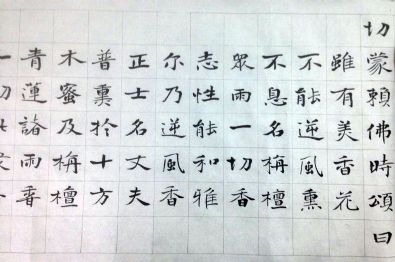 切蒙賴佛時頌曰
雖有美香花
不能逆風熏
不息名栴檀
眾雨一切香
志性能和雅
尔乃逆風香
正士名丈夫
普熏於十方
木蜜及栴檀
青蓮諸雨香
一切